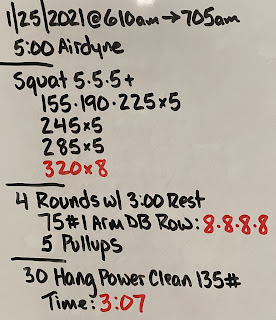 1/25/2021 @ 610am → 705am
5:00 Airdyne
Squat 5·5·5+
155·190·225x5
245x5
285x5
320x8
4 Rounds w/ 3:00 Rest
75# 1 Arm DB Row: 8·8·8·8
5 Pullups
30 Hang Power Clean 135#
Time: 3:07